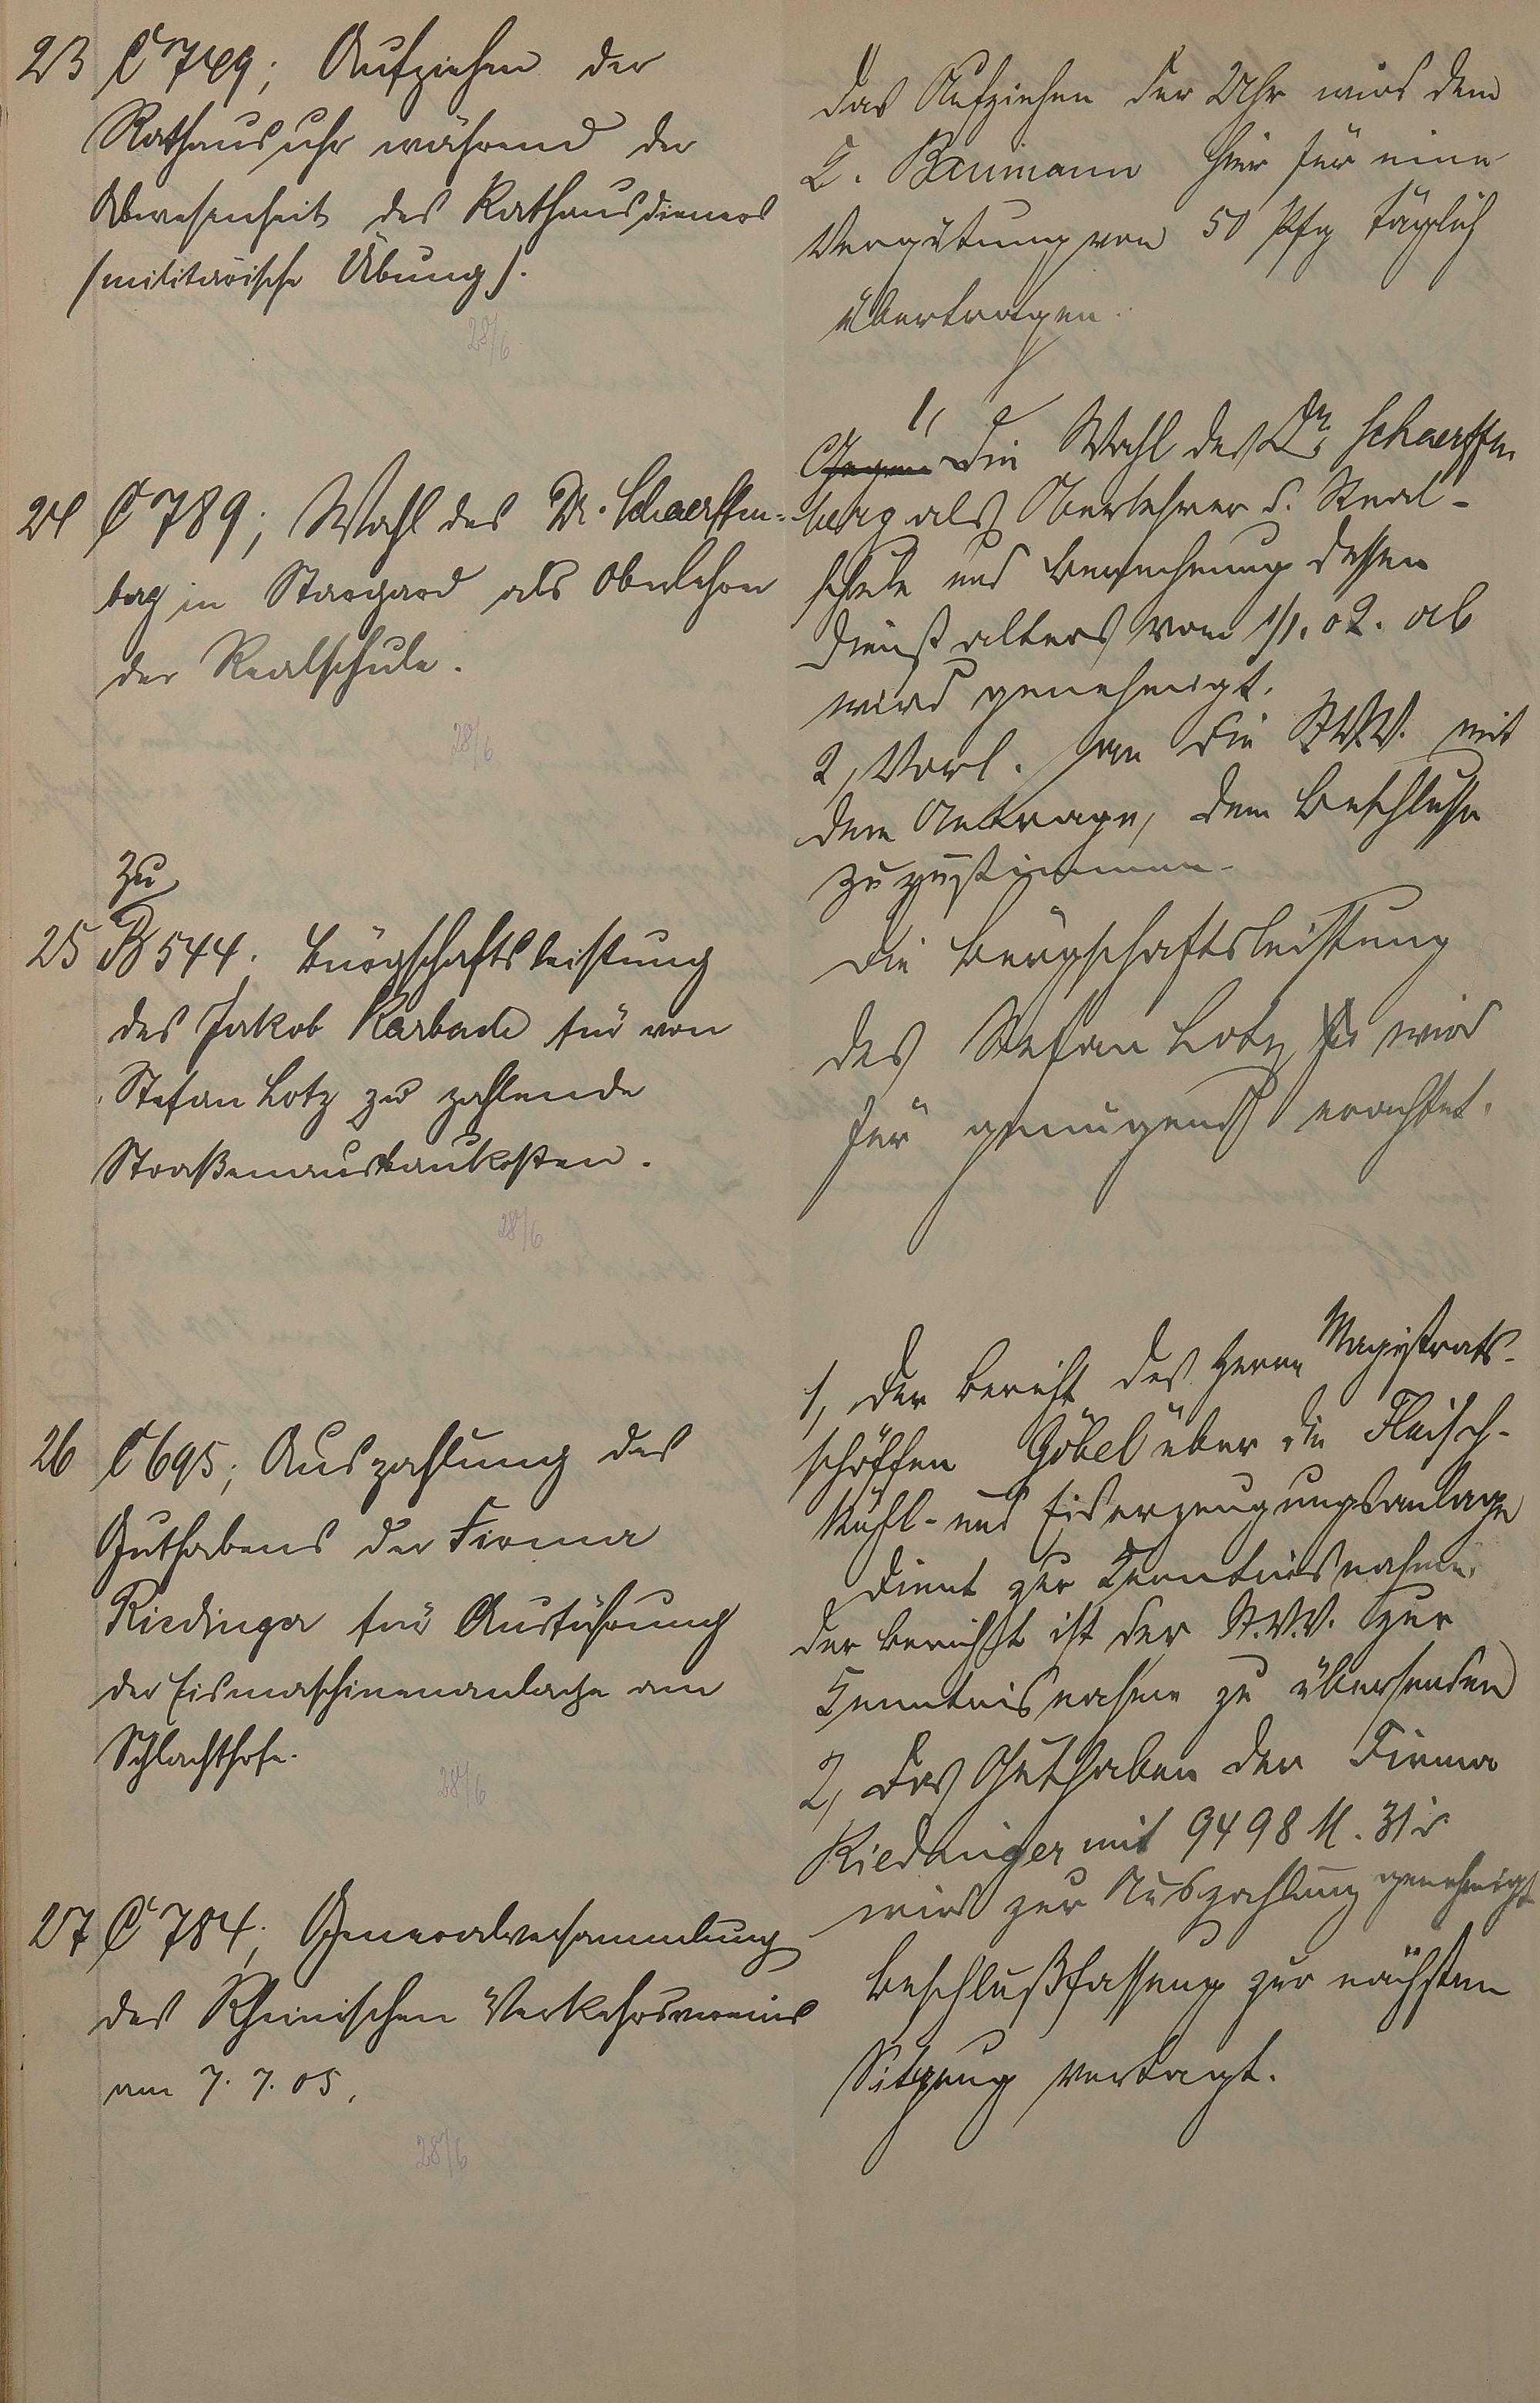 23 C 749; Aufziehen der
Rathausuhr während der
Abwesenheit des Rathausdieners
(militärische Übung).
28/6
Das Aufziehen der Uhr wird dem
K. Baumann hier für eine
Vergütung von 50 Pfg täglich
übertragen.
24 C 789; Wahl des Dr. Schaerffen-
berg in Stargard als Oberlehrer
der Realschule.
28/6
1,
Gegen die Wahl des Dr. Schaerffen
berg als Oberlehrer d. Real-
schule und Berechnung dessen
Dienstalters vom 1/1. 02. ab
wird genehmigt.
2, Vorl. an die St.V.V. mit
dem Antrage, dem Beschlusse
zuzustimmen.
Zu
25 B 544. Bürgschaftsleistung
des Jakob Karbach für von
Stefan Lotz zu zahlende
Straßenausbaukosten.
28/6
Die Bürgschaftsleistung
des Stefan Lotz wird
für genügend erachtet.
26 C 695; Auszahlung des
Guthabens der Firma
Riedinger für Ausführung
der Eismaschinenanlage am
Schlachthofe.
28/6
1, Der Bericht des Herrn Magistrats-
schöffen Göbel über die Fleisch-
kühl- und Eiserzeugungsanlage
dient zur Kenntnisnahme.
Der Bericht ist der St.V.V. zur
Kenntnisnahme zu übersenden
2, Das Guthaben der Firma
Riedinger mit 9498 M. 31 d
wird zur Auszahlung genehmigt
27 C 784; Generalversammlung
des Rheinischen Verkehrsvereins
am 7. 7. 05.
28/6
Beschlußfassung zur nächsten
Sitzung vertagt.